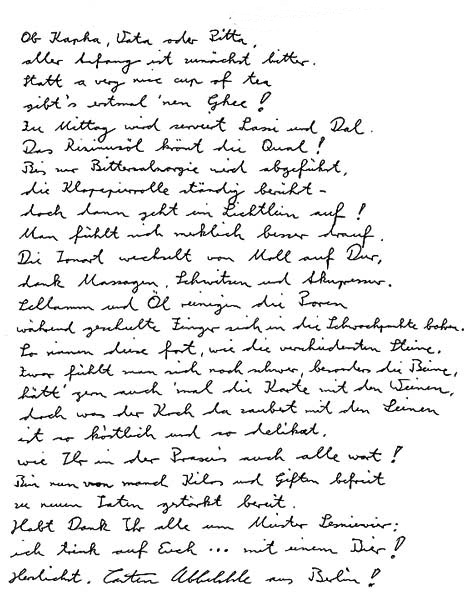 Ob Kapha, Vata oder Pitta,
aller Anfang ist zunächst bitter.
Statt a very nice cup of tea
gibt's erstmal 'nen Ghee!
Zu Mittag wird serviert Lassi und Dal.
Das Rizinusöl krönt die Qual!
Bis zur Bittersalzorgie wird abgeführt,
die Klopapierrolle ständig berührt -
doch dann geht ein Lichtlein auf!
Man fühlt sich merklich besser drauf.
Die Tonart wechselt von Moll auf Dur,
dank Massagen, Schwitzen und Akupressur.
Schlamm und Öl reinigen die Poren
während geschulte Finger sich in die Schwachpunkte bohren.
So rinnen diese fort, wie die verschiedensten Steine.
Zwar fühlt man sich noch schwer, besonders die Beine,
hätt' gern auch 'mal die Karte mit den Weinen,
doch was der Koch da zaubert mit den Seinen
ist so köstlich und so delikat,
wie Ihr in der Praxis auch alle wart!
Bin nun von manch Kilos und Giften befreit
zu neuen Taten gestärkt bereit.
Habt Dank Ihr alle um Meister
ich trink auf Euch ... mit einem Bier!
Herzlichst, aus Berlin!